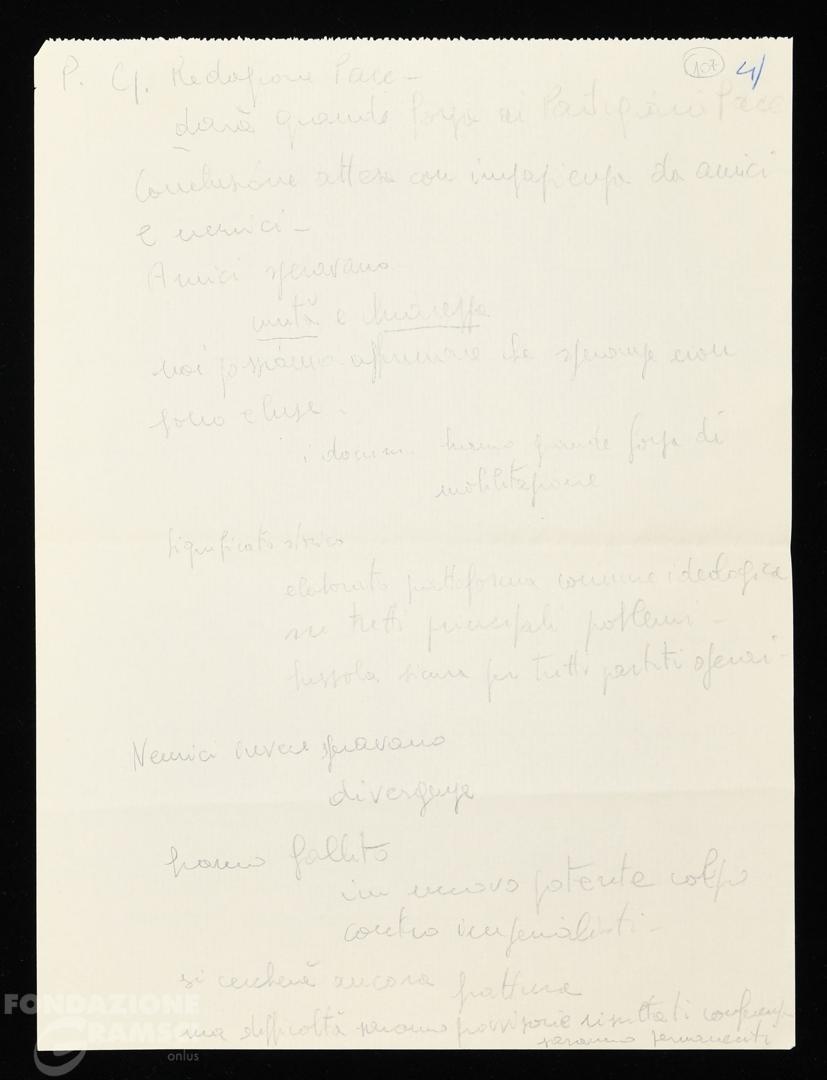 107 4/
P. Cf. Redazione Pace -
darà grande forza ai Partigiani Pace
Conclusione attesa con impazienza da amici
e nemici -
Amici speravano
unità e chiarezza
noi possiamo affermare che speranze non
sono eluse.
i docum. hanno grande forza di
mobilitazione
Significato storico
elaborato piattaforma comune ideologica
su tutti principali problemi -
bussola sicura per tutti partiti operai -
Nemici invece speravano
divergenze
hanno fallito
un nuovo potente colpo
contro imperialisti -
si cercherà ancora frattura
ma difficoltà saranno provvisorie risultati conferenza
saranno permanenti
FONDAZIONE
GRAMSCI
onlus